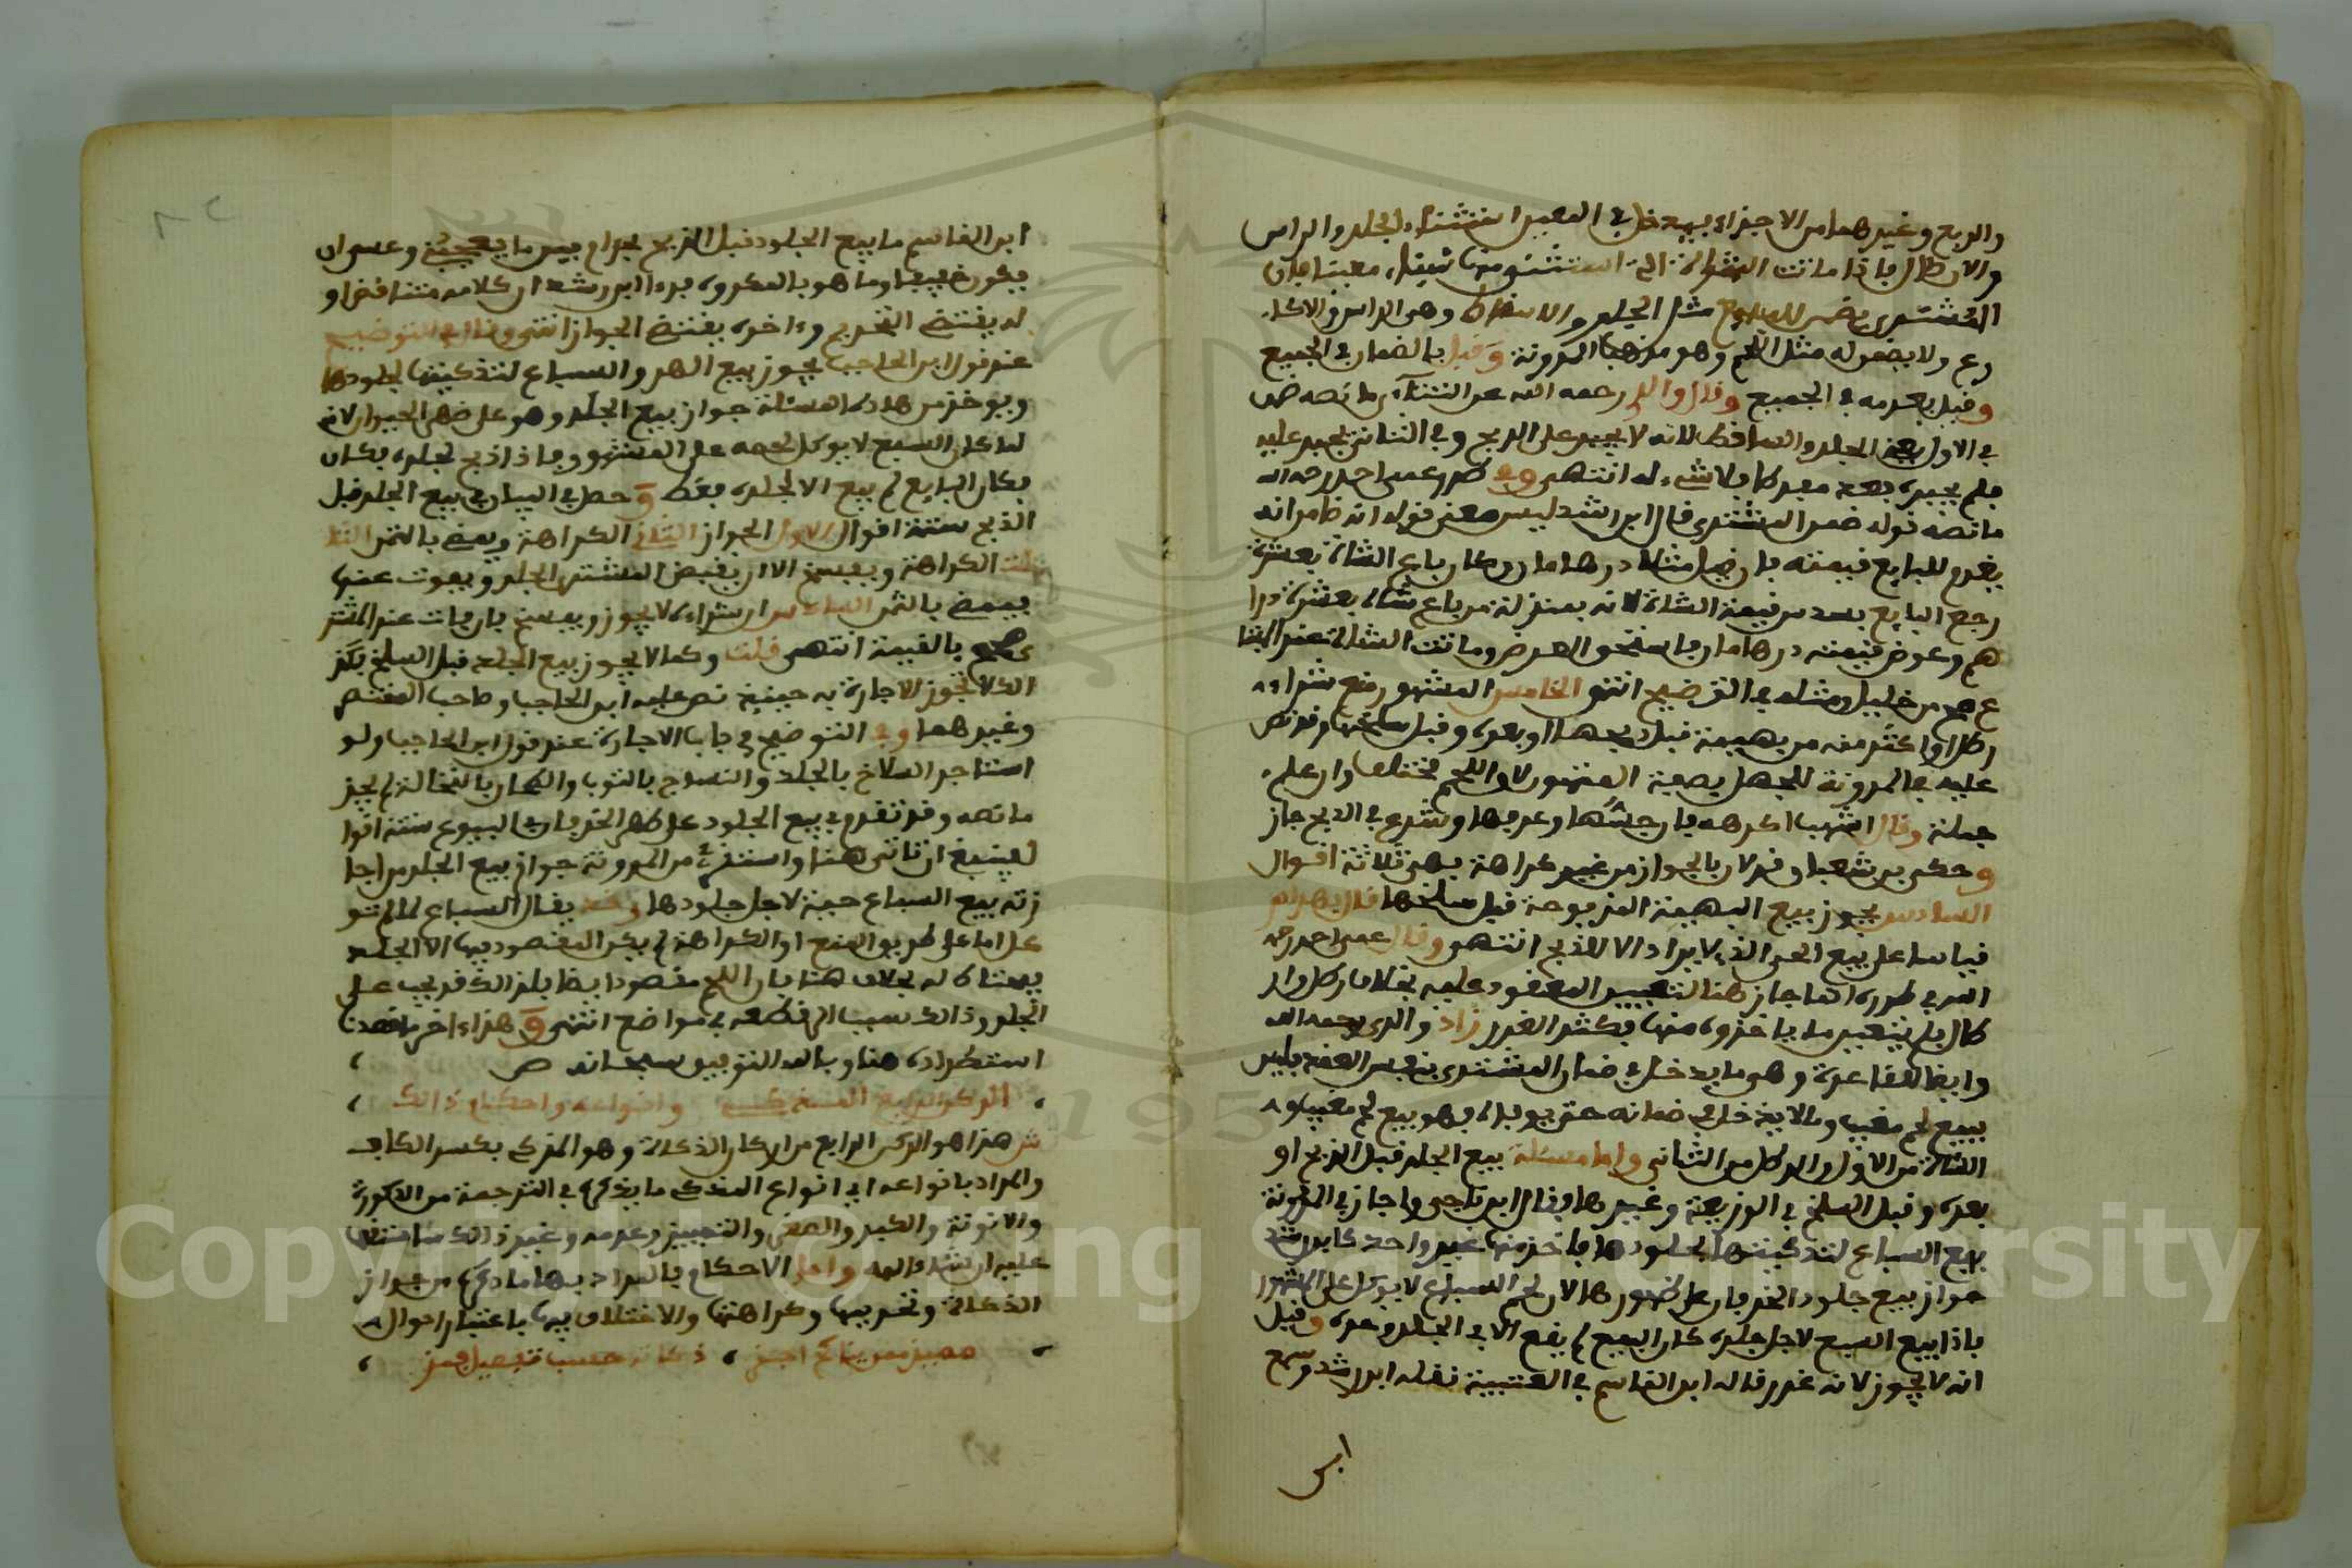 والربع وغيرهما من الاجزاء بيعه في المعين استثناء الجلد والراس
والارطال فاذا ماتت الشاة التي استثنى منها شيئا معينا فان
المشتري يضمن للبايع مثل الجلد والاسقاط وهي الراس والاكارع
ولا يضمن له مثل اللحم وهو مذهب المدونة وقيل بالضمان في الجميع
وقيل بعدمه في الجميع وقال والدي رحمه الله عن التتائي ما نصه
في الاول بعض الجلد والساقط لانه لا يجبر على الذبح وفي الثاني يجبر عليه
فلم يجبره فلا شيء له انتهى وفي طرر عمي احمد رحمه الله
ما نصه قوله ضمن المشتري قال ابن رشد ليس معنى قوله انه ضامن انه
يغرم للبايع قيمته مثلا درهمان باع الشاة بعشرة
رجع البايع بسدس قيمة الشاة لانه بمنزلة من باع شاة بعشرة درا
هم وعرض قيمته درهمان فاستحق العرض وماتت الشاة عند المبتا
ع من خليل ومثله في التوضيح انتهى الخامس المشهور منع شراء
رطل او اكثر منه من بهيمة قبل ذبحها او بعده وقبل سلخها وقد نص
عليه في المدونة للجهل بصفة المشهور لان اللحم مختلف وان علم
جملة وقال اشهب اكرهه فان جسها وعرفها وشرع في الذبح جاز
وحكى ابن شعبان قولان بالجواز من غير كراهة فهي ثلاثة اقوال
السادس يجوز بيع البهيمة المذبوحة قبل سلخها قال بهرام
قياسا على بيع الحي الذي لا يراد الا للذبح انتهى وقال عمي احمد رحمه
الله في طرره انما جاز هنا لتعيين المعقود عليه بخلاف رطل وار
طال فلم يتعين ما ياخذونه منها فكثر الغرر زاد والدي رحمه الله
وايضا القاعدة وهو ما يدخل في ضمان المشتري بنفس العقد فليس
ببيع لحم مغيب وما لا يدخل في ضمانه حتى يوفيه فهو بيع لحم مغيب
الشاة من الاول والرطل من الثاني واما مسئلة بيع الجلد قبل الذبح او
بعده وقبل السلخ في الوديعة وغيرها فقال ابن ناجي واجاز في المدونة
بيع السباع لتذكيتها لجلودها فاخذ منها غير واحد كابن رشد
جواز بيع جلود الخرفان على ظهورها لان لحم السباع لا يوكل على المشهور
فاذا بيع السبع لاجل جلده كان البيع لم يقع الا في الجلد وحده وقيل
انه لا يجوز لانه غرر قاله ابن القاسم في العتبية نقله ابن رشد وسمع
ابن
ابن القاسم ما بيع الجلود قبل الذبح بحرام بين ما يعجبني وعسى ان
يكون خفيفا وما هو بالمكروه فرءا ابن رشد ان كلامه متناقض او
له يقتضي التحريم وءاخره يقتضي الجواز انتهى وقال في التوضيح
عند قول ابن الحاجب يجوز بيع الهر والسباع لتذكيتها لجلودها
ويوخذ من هذه المسئلة جواز بيع الجلد وهو على ظهر الحيوان لانه
لما كان السبع لا يوكل لحمه على المشهور وما ذا ذبح لجلده فكان
فكان البايع لم يبع الا لجلده فقط وحصل في البيان في بيع الجلد قبل
الذبح ستة اقوال الاول الجواز الثاني الكراهة ويمضي بالثمن الثا
لث الكراهة ويفسخ الا ان يقبض المشتري الجلد ويفوت عنده
فيمضي بالثمن السادس ان شراءه لا يجوز ويفسخ فان فات عند المشتر
ي صح بالقيمة انتهى قلت وكما لا يجوز بيع الجلد قبل السلخ فكذ
الك لا تجوز الاجارة به حينئذ نص عليه ابن الحاجب وصاحب المختصر
وغيرهما وفي التوضيح في باب الاجارة عند قول ابن الحاجب ولو
استاجر السلاخ بالجلد والنساج بالثوب والطحان بالنخالة لم يجز
ما نصه وقد تقدم في بيع الجلود على ظهر الخرفان في البيوع ستة اقوا
ل فينبغي ان تاتي هنا واستقرئ من المدونة جواز بيع الجلد من اجا
زته بيع السباع حية لاجل جلودها وقد يقال السباع لما لم تو
كل اما على طريق المنع او الكراهة لم يكن المقصود فيها الا الجلد
بخلاف هنا فان اللحم مقصود ايضا فلذالك قد يجب على
الجلد وذالك سبب الى قطعه في مواضع انتهى وهذا ءاخر ما قصدنا
استطراده هنا وبالله التوفيق سبحانه ص
الركن الرابع المذكى وانواعه واحكام ذالك
ش هذا هو الركن الرابع من اركان الذكاة وهو المذكى بكسر الكاف
والمراد بانواعه اي انواع المذكي ما يذكره في الترجمة من الذكورة
والانوثة والكبر والصغر والتمييز وعدمه وغير ذالك مما ستقف
عليه ان شاء الله واما الاحكام فالمراد بها ما ذكره من جواز
الذكاة وتحريمها وكراهتها والاختلاف فيها باعتبار احوال
مميز تفصيل